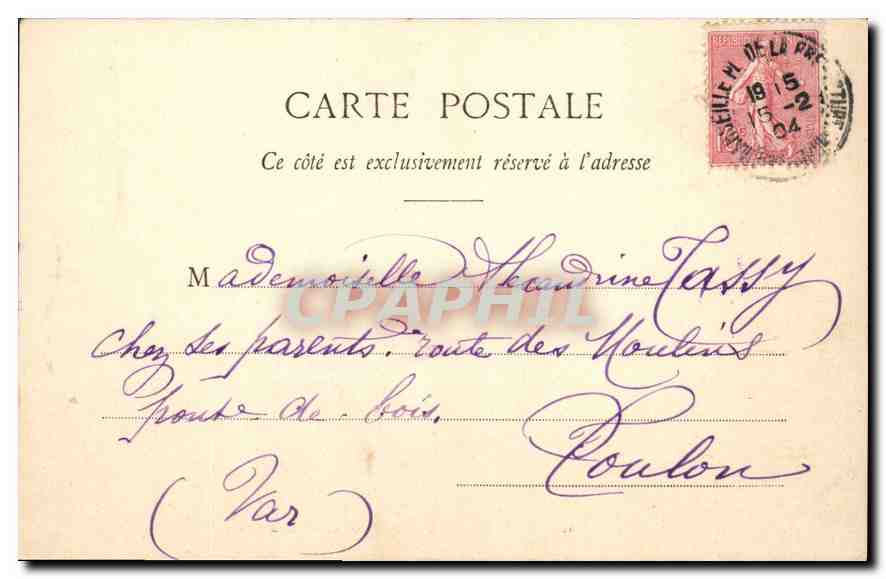 RÉPUBLIQUE
MARSEILLE Pl. DE LA PRE TURE
19 15
15 -2
04
CARTE POSTALE
Ce côté est exclusivement réservé à l'adresse
Mademoiselle Alexandrine Tassy
CPAPHIL
chez ses parents. route des Moulins
de bois.
Toulon
(Var)